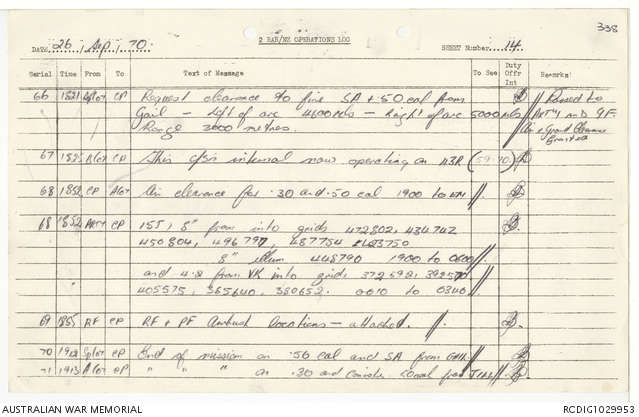 338
2 RAR/NZ OPERATIONS LOG
DATE 26 / Sep / 70. SHEET Number 14.
Serial Time From To Text of Message To See Duty Offr Int Remarks
66 1821 CP Request clearance to fire SA + 50 cal from Passed to
Gail - left of arc 4600 mls - Right of arc 5000 mls Arty and GF.
Range 3000 metres. Air & Ground Clearance Granted
67 CP This c/s internal now operating on (59.10)
68 1850 CP Air clearance for .30 and .50 cal 1900 to
68 1852 Arty CP 155, 8" from into grids 472802, 434742
450804, 496797, 487754
8" illum 448790 1900 to 0600
and 4.2 from VK into grids 372592,
405575, 365640, 380652. to 0340
69 1855 RF CP RF + PF Ambush locations - attached.
70 CP End of mission on .50 cal and SA from Gail
71 1913 CP " " " on .30 and from
AUSTRALIAN WAR MEMORIAL RCDIG1029953